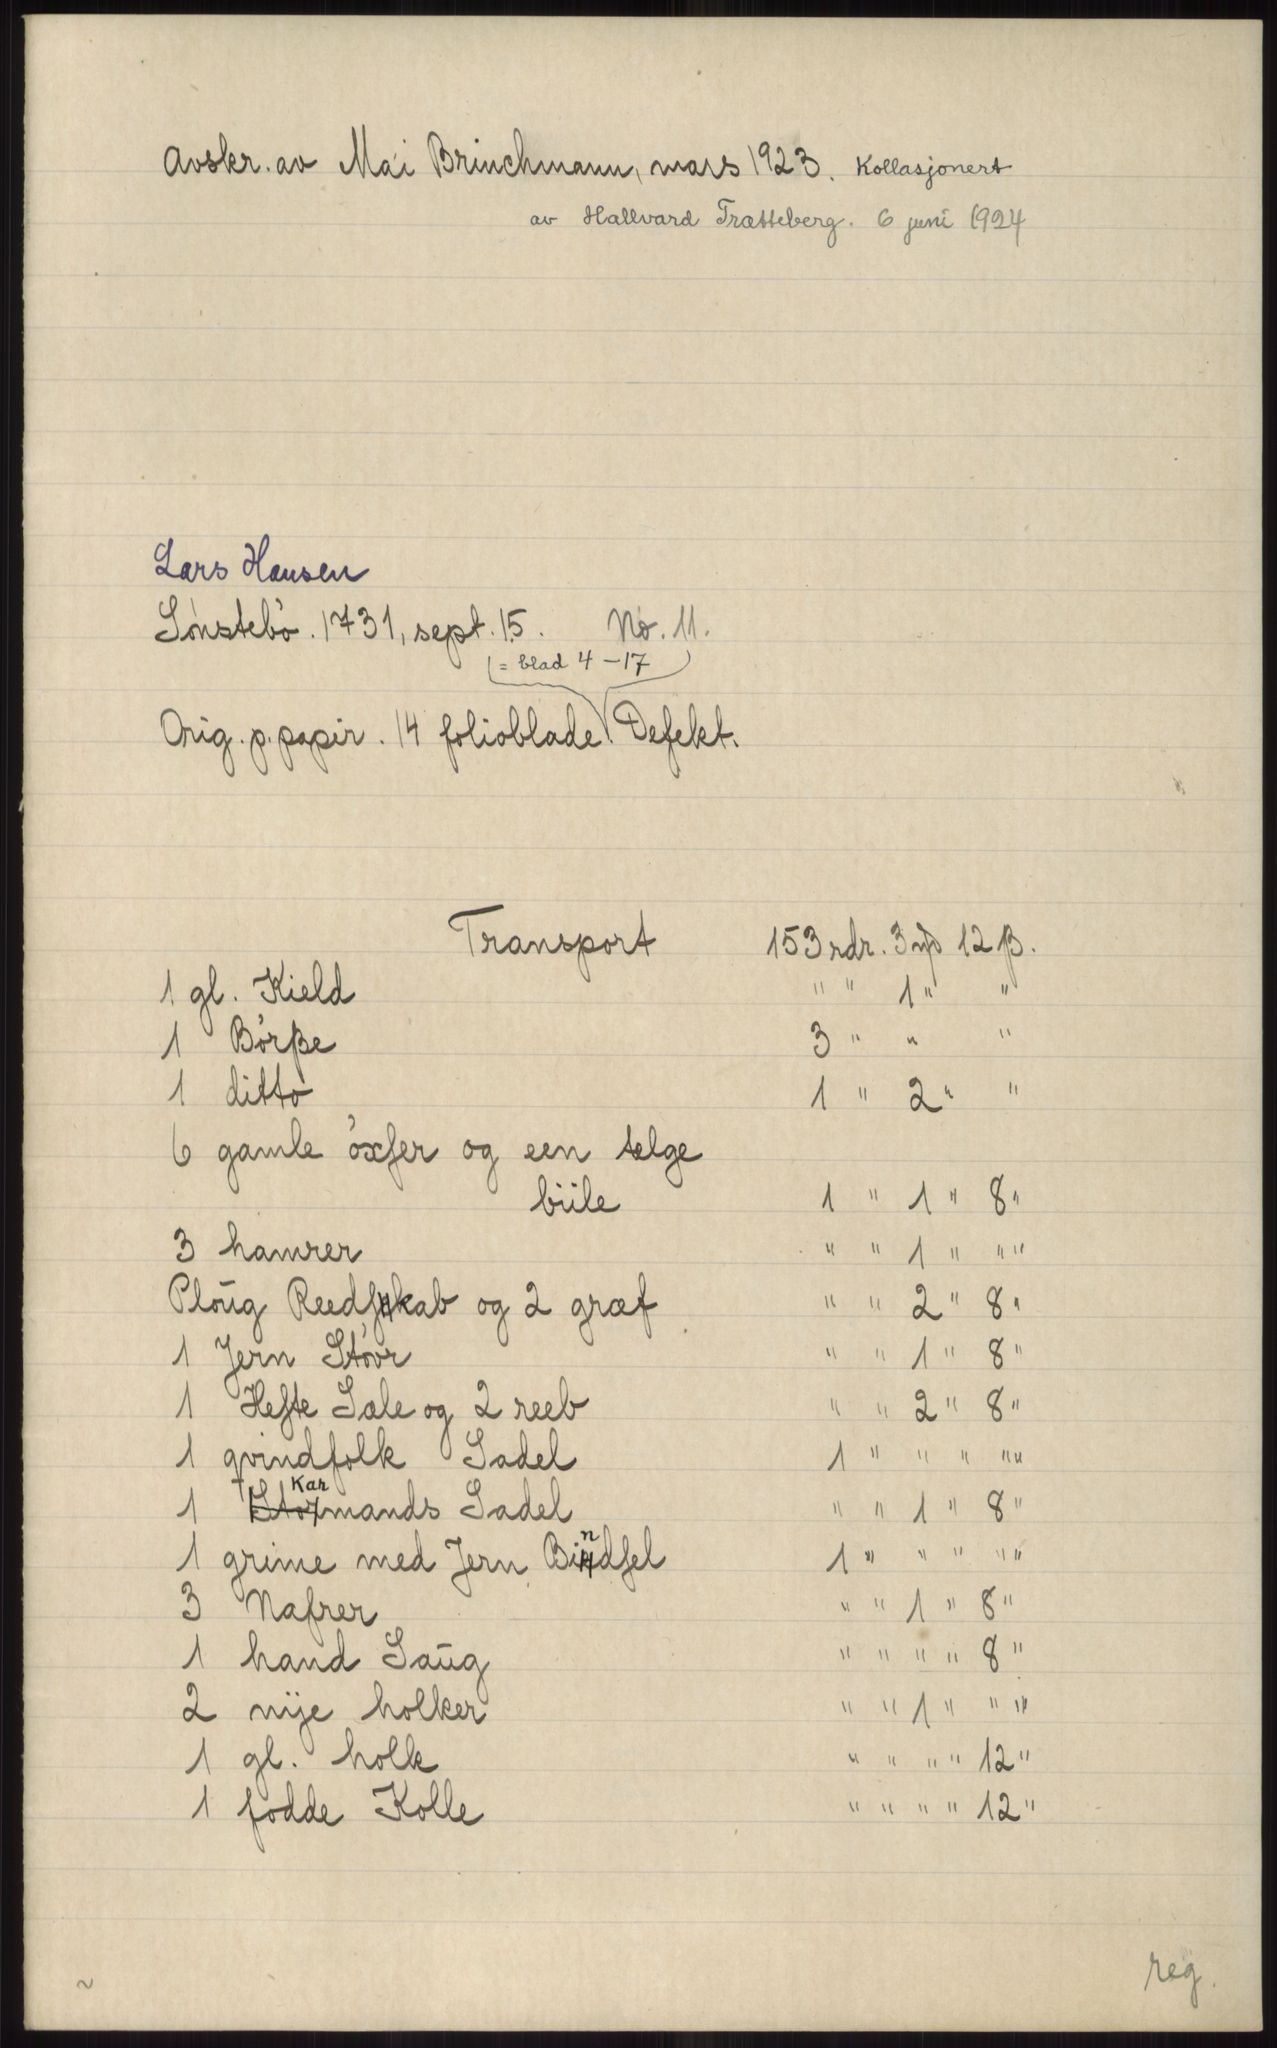 Avskr. av Mai Brinchmann, mars 1923. Kollasjonert
av Hallvard Trætteberg. 6 juni 1924
Lars Hansen
Sønstebø. 1731, sept. 15. No. 11.
(= blad 4-17)
Orig. p. papir. 14 folioblade. Defekt.
Transport 153 rdr. 3 mk 12 β.
1 gl. Kield " " 1 " "
1 Børβe 3 " " "
1 ditto 1 " 2 " "
6 gamle øxser og een telge
biile 1 " 1 " 8 "
3 hamrer " " 1 " " "
Ploŭg Reedskab og 2 græf " " 2 " 8 "
1 Jern Støvr " " 1 " 8 "
1 Heste Sæle og 2 reeb " " 2 " 8 "
1 qvindfolk Sadel 1 " " " " "
1 Karmands Sadel " " 1 " 8 "
1 grime med Jern Bindsel 1 " " " " "
3 Nafrer " " 1 " 8 "
1 hand Saŭg " " " " 8 "
2 nÿe holker " " 1 " " "
1 gl. holk " " " " 12 "
1 fodde Kolle " " " " 12 "
reg.